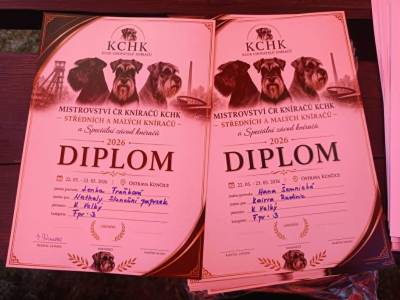 KCHK
KLUB CHOVATELŮ KNÍRAČŮ
MISTROVSTVÍ ČR KNÍRAČŮ KCHK
STŘEDNÍCH A MALÝCH KNÍRAČŮ
a Speciální závod kníračů
2026
DIPLOM
22. 05. - 23. 05. 2026 OSTRAVA KUNČICE
Lenka
Nathaly Sluneční paprsek
K Velký
Fpr-3
KCHK
KLUB CHOVATELŮ KNÍRAČŮ
MISTROVSTVÍ ČR KNÍRAČŮ KCHK
STŘEDNÍCH A MALÝCH KNÍRAČŮ
a Speciální závod kníračů
2026
DIPLOM
22. 05. - 23. 05. 2026 OSTRAVA KUNČICE
Hana
Kairra
K Velký
Fpr-3